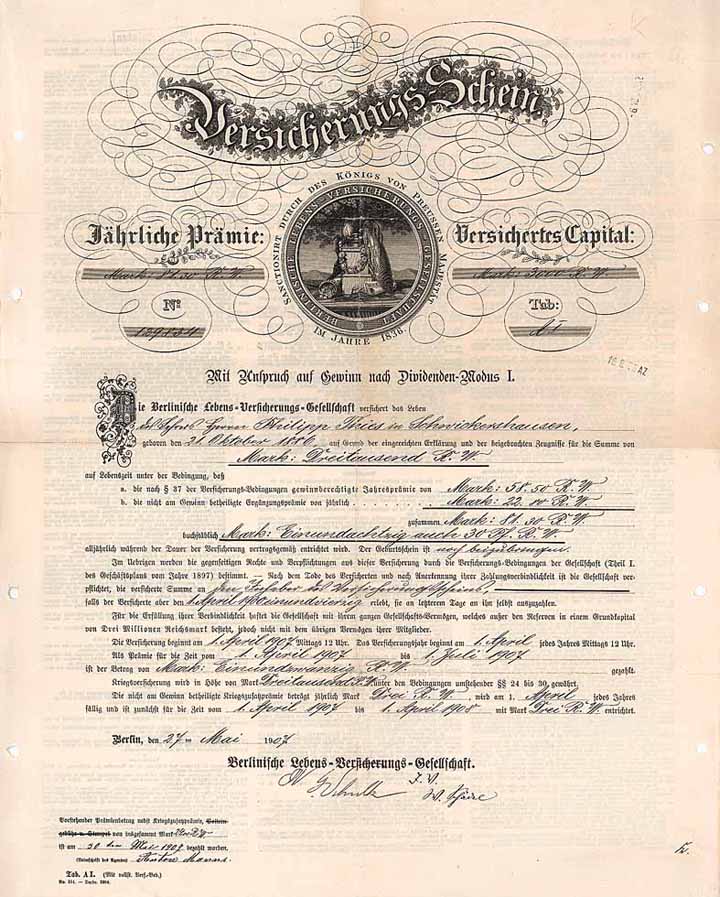 Versicherungs Schein
SANCTIONIRT DURCH DES KÖNIGS VON PREUSSEN MAJESTÄT
IM JAHRE 1836.
BERLINISCHE LEBENS VERSICHERUNGS GESELLSCHAFT
Jährliche Prämie:
Versichertes Capital:
Mark R. W.
Mark 3000 R. W.
No
Tab:
139834
A I
Mit Anspruch auf Gewinn nach Dividenden-Modus I.
Die Berlinische Lebens-Versicherungs-Gesellschaft versichert das Leben
des Herrn Philipp in Schwickershausen,
geboren den 21. Oktober 1886 auf Grund der eingereichten Erklärung und der beigebrachten Zeugnisse für die Summe von
Mark: Dreitausend R. W.
auf Lebenszeit unter der Bedingung, daß
a. die nach § 37 der Versicherungs-Bedingungen gewinnberechtigte Jahresprämie von Mark: 58.50 R. W.
b. die nicht am Gewinn betheiligte Ergänzungsprämie von jährlich Mark: 22. R. W.
zusammen Mark: 81.30 R. W.
buchstäblich Mark: Einundachtzig auch 30 Pf. R. W.
alljährlich während der Dauer der Versicherung vertragsgemäß entrichtet wird. Der Geburtschein ist noch beizubringen.
Im Uebrigen werden die gegenseitigen Rechte und Verpflichtungen aus dieser Versicherung durch die Versicherungs-Bedingungen der Gesellschaft (Theil I.
des Geschäftsplans vom Jahre 1897) bestimmt. — Nach dem Tode des Versicherten und nach Anerkennung ihrer Zahlungsverbindlichkeit ist die Gesellschaft ver-
pflichtet, die versicherte Summe an den Inhaber des Versicherungsscheins,
falls der Versicherte aber den 1. April 19 einundvierzig erlebt, sie an letzteren Tage an ihn selbst auszuzahlen.
Für die Erfüllung ihrer Verbindlichkeit haftet die Gesellschaft mit ihrem ganzen Gesellschafts-Vermögen, welches außer den Reserven in einem Grundkapital
von Drei Millionen Reichsmark besteht, jedoch nicht mit dem übrigen Vermögen ihrer Mitglieder.
Die Versicherung beginnt am 1. April 1907 Mittags 12 Uhr. Das Versicherungsjahr beginnt am 1. April jedes Jahres Mittags 12 Uhr.
Als Prämie für die Zeit vom 1. April 1907 bis 1. Juli 1907
ist der Betrag von Mark: Einundzwanzig R. W. gezahlt.
Kriegsversicherung wird in Höhe von Mark Dreitausend R. W. unter den Bedingungen umstehender §§ 24 bis 30 gewährt.
Die nicht am Gewinn betheiligte Kriegszusatzprämie beträgt jährlich Mark Drei R. W., wird am 1. April jedes Jahres
fällig und ist zunächst für die Zeit vom 1. April 1907 bis 1. April 1908 mit Mark Drei R. W. entrichtet.
Berlin, den 27ten Mai 1907
Berlinische Lebens-Versicherungs-Gesellschaft.
I. V.
Vorstehender Prämienbetrag nebst Kriegszusatzprämie,
von insgesammt Mark
ist am 30 ten Mai 190 bezahlt worden.
(Unterschrift des Agenten)
Tab. A I. (Mit vollst. Vers.-Bed.)